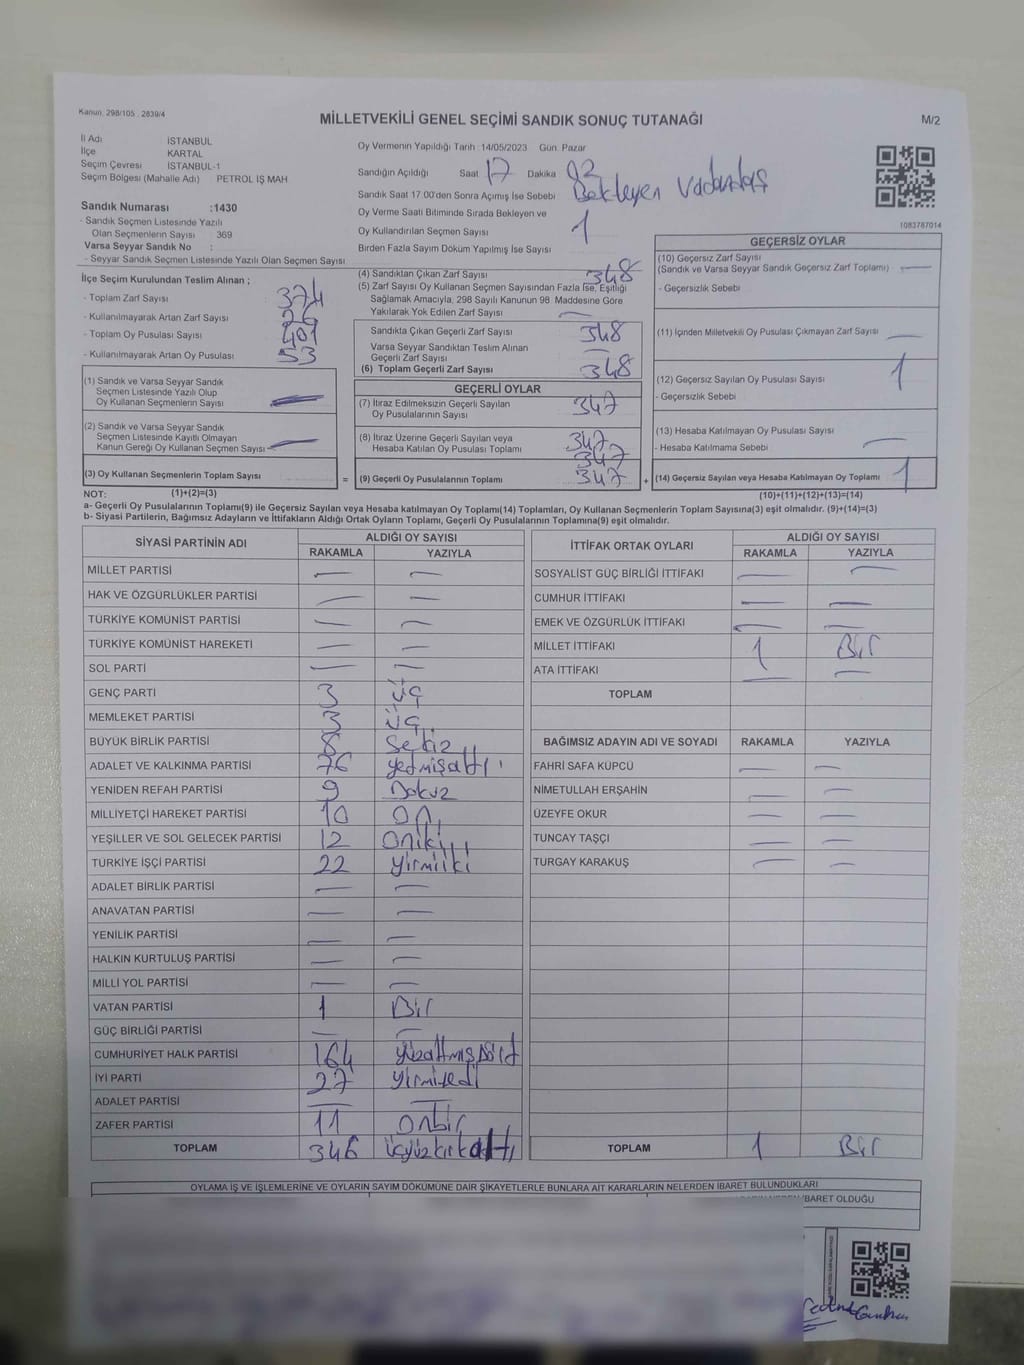 Kanun: 298/105, 2839/4
MİLLETVEKİLİ GENEL SEÇİMİ SANDIK SONUÇ TUTANAĞI
M/2
İl Adı İSTANBUL
İlçe KARTAL
Seçim Çevresi İSTANBUL-1
Seçim Bölgesi (Mahalle Adı) PETROL İŞ MAH
Sandık Numarası :1430
- Sandık Seçmen Listesinde Yazılı
Olan Seçmenlerin Sayısı : 369
Varsa Seyyar Sandık No :
- Seyyar Sandık Seçmen Listesinde Yazılı Olan Seçmen Sayısı
Oy Vermenin Yapıldığı Tarih :14/05/2023 Gün: Pazar
Sandığın Açıldığı Saat 17 Dakika
Sandık Saat 17:00'den Sonra Açımış İse Sebebi Bekleyen Vadandaş
Oy Verme Saati Bitiminde Sırada Bekleyen ve
Oy Kullandırılan Seçmen Sayısı 1
Birden Fazla Sayım Döküm Yapılmış İse Sayısı
1083787014
İlçe Seçim Kurulundan Teslim Alınan ;
- Toplam Zarf Sayısı 374
- Kullanılmayarak Artan Zarf Sayısı 26
- Toplam Oy Pusulası Sayısı 401
- Kullanılmayarak Artan Oy Pusulası 53
(1) Sandık ve Varsa Seyyar Sandık
Seçmen Listesinde Yazılı Olup
Oy Kullanan Seçmenlerin Sayısı
(2) Sandık ve Varsa Seyyar Sandık
Seçmen Listesinde Kayıtlı Olmayan
Kanun Gereği Oy Kullanan Seçmen Sayısı -
(3) Oy Kullanan Seçmenlerin Toplam Sayısı =
(4) Sandıktan Çıkan Zarf Sayısı 348
(5) Zarf Sayısı Oy Kullanan Seçmen Sayısından Fazla İse, Eşitliği
Sağlamak Amacıyla, 298 Sayılı Kanunun 98. Maddesine Göre
Yakılarak Yok Edilen Zarf Sayısı —
Sandıkta Çıkan Geçerli Zarf Sayısı 348
Varsa Seyyar Sandıktan Teslim Alınan
Geçerli Zarf Sayısı —
(6) Toplam Geçerli Zarf Sayısı 348
GEÇERLİ OYLAR
(7) İtiraz Edilmeksizin Geçerli Sayılan
Oy Pusulalarının Sayısı 347
(8) İtiraz Üzerine Geçerli Sayılan veya 347
Hesaba Katılan Oy Pusulası Toplamı 347
(9) Geçerli Oy Pusulalarının Toplamı 347 +
GEÇERSİZ OYLAR
(10) Geçersiz Zarf Sayısı
(Sandık ve Varsa Seyyar Sandık Geçersiz Zarf Toplamı) —
- Geçersizlik Sebebi
(11) İçinden Milletvekili Oy Pusulası Çıkmayan Zarf Sayısı —
(12) Geçersiz Sayılan Oy Pusulası Sayısı 1
- Geçersizlik Sebebi
(13) Hesaba Katılmayan Oy Pusulası Sayısı
- Hesaba Katılmama Sebebi —
(14) Geçersiz Sayılan veya Hesaba Katılmayan Oy Toplamı 1
NOT: (1)+(2)=(3) (10)+(11)+(12)+(13)=(14)
a- Geçerli Oy Pusulalarının Toplamı(9) ile Geçersiz Sayılan veya Hesaba katılmayan Oy Toplamı(14) Toplamları, Oy Kullanan Seçmenlerin Toplam Sayısına(3) eşit olmalıdır. (9)+(14)=(3)
b- Siyasi Partilerin, Bağımsız Adayların ve İttifakların Aldığı Ortak Oyların Toplamı, Geçerli Oy Pusulalarının Toplamına(9) eşit olmalıdır.
SİYASİ PARTİNİN ADI ALDIĞI OY SAYISI
RAKAMLA YAZIYLA
MİLLET PARTİSİ — —
HAK VE ÖZGÜRLÜKLER PARTİSİ — —
TÜRKİYE KOMÜNİST PARTİSİ — —
TÜRKİYE KOMÜNİST HAREKETİ — —
SOL PARTİ — —
GENÇ PARTİ 3 ÜÇ
MEMLEKET PARTİSİ 3 ÜÇ
BÜYÜK BİRLİK PARTİSİ 8 Sekiz
ADALET VE KALKINMA PARTİSİ 76 yetmişaltı
YENİDEN REFAH PARTİSİ 9 Dokuz
MİLLİYETÇİ HAREKET PARTİSİ 10 On
YEŞİLLER VE SOL GELECEK PARTİSİ 12 Oniki
TÜRKİYE İŞÇİ PARTİSİ 22 yirmiiki
ADALET BİRLİK PARTİSİ — —
ANAVATAN PARTİSİ — —
YENİLİK PARTİSİ — —
HALKIN KURTULUŞ PARTİSİ — —
MİLLİ YOL PARTİSİ — —
VATAN PARTİSİ 1 Bir
GÜÇ BİRLİĞİ PARTİSİ — —
CUMHURİYET HALK PARTİSİ 164 yüzaltmışdört
İYİ PARTİ 27 yirmiyedi
ADALET PARTİSİ — —
ZAFER PARTİSİ 11 Onbir
TOPLAM 346 üçyüzkırkaltı
İTTİFAK ORTAK OYLARI ALDIĞI OY SAYISI
RAKAMLA YAZIYLA
SOSYALİST GÜÇ BİRLİĞİ İTTİFAKI — —
CUMHUR İTTİFAKI — —
EMEK VE ÖZGÜRLÜK İTTİFAKI — —
MİLLET İTTİFAKI 1 Bir
ATA İTTİFAKI — —
TOPLAM
BAĞIMSIZ ADAYIN ADI VE SOYADI RAKAMLA YAZIYLA
FAHRİ SAFA KÜPCÜ — —
NİMETULLAH ERŞAHİN — —
ÜZEYFE OKUR — —
TUNCAY TAŞÇI — —
TURGAY KARAKUŞ — —
TOPLAM 1 Bir
OYLAMA İŞ VE İŞLEMLERİNE VE OYLARIN SAYIM DÖKÜMÜNE DAİR ŞİKAYETLERLE BUNLARA AİT KARARLARIN NELERDEN İBARET BULUNDUKLARI
İBARET OLDUĞU